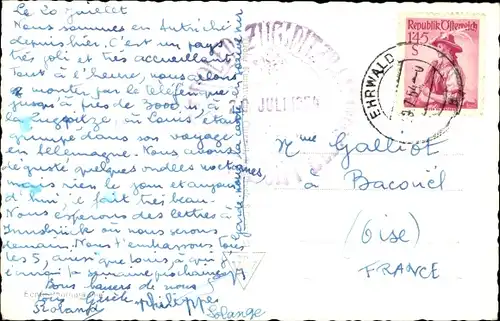 Le 20 Juillet
Nous sommes en Autriche
depuis hier. C'est un pays
très joli et très accueillant.
Tout à l'heure, nous allons
monter par le téléférique
jusqu'à près de 3000 m, à la
Zugspitze, où Louis était
grimpé dans son voyage
en Allemagne. Nous avons
dégusté quelques ondées nocturnes
mais rien le jour et aujour-
d'hui, il fait très beau.
Nous espérons des lettres à
Innsbrück où nous serons
demain. Nous t'embrassons tous
les 5, ainsi que Louis, à qui j'
semaine prochaine
Bons baisers de nous
Gisèle philippe
Roland
Solange
Republik Österreich
1.45 S
EHRWALD
20. JULI 1954
Mme Galliot
à Bacouël
(Oise)
FRANCE